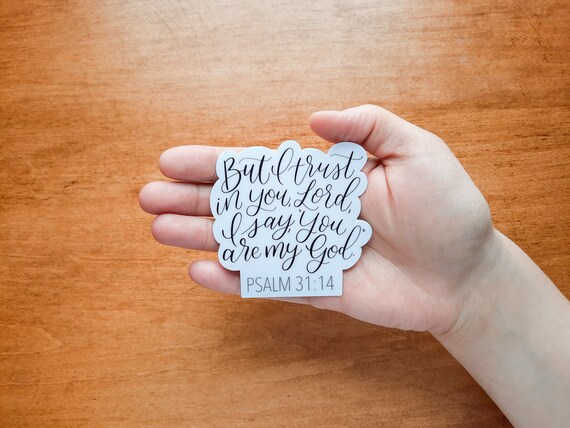 But I trust
in you, Lord,
I say, "You
are my God."
PSALM 31:14